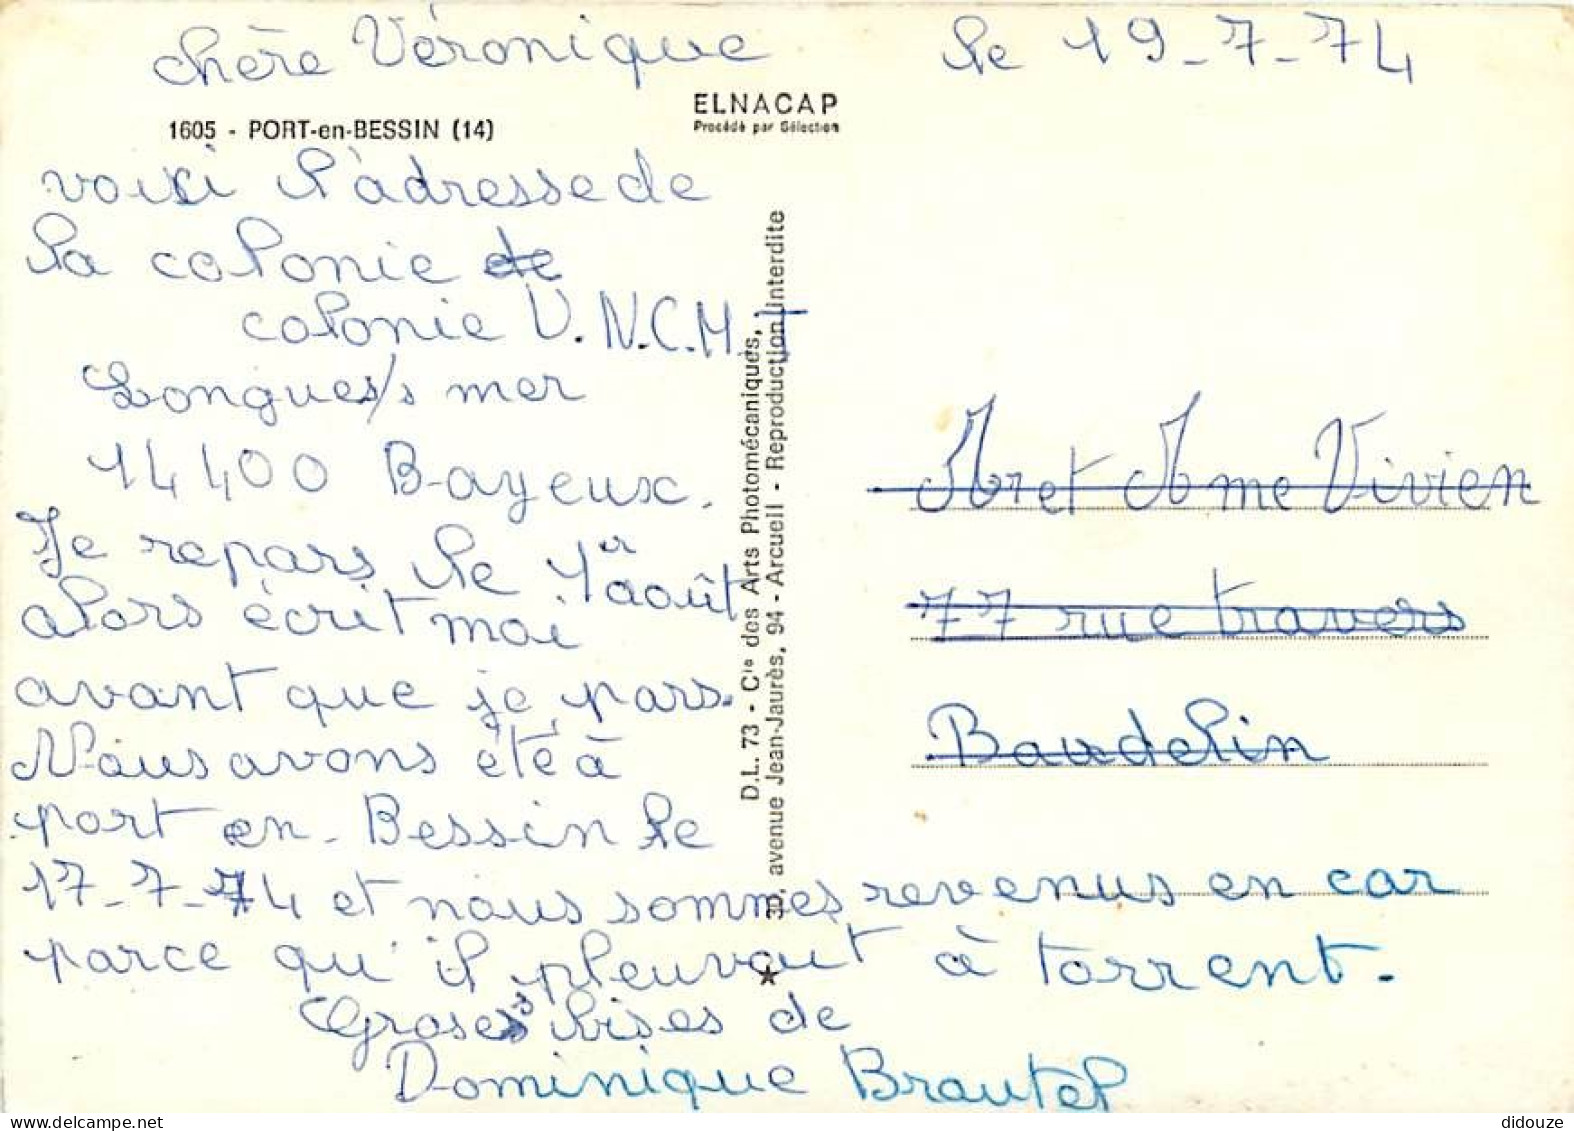 chère Véronique le 19-7-74
ELNACAP
Procédé par Sélection
1605 - PORT-en-BESSIN (14)
voici l'adresse de
la colonie de
colonie U.N.C.M.T
Longues/s mer
14400 Bayeux.
Je repars le 1er août
alors écrit moi
avant que je pars.
Nous avons été à
port en-Bessin le
17-7-74 et nous sommes revenus en car
parce qu'il pleuvait à torrent.
Groses Bises de
Dominique Brautel
D.L. 73 - Cie des Arts Photomécaniques,
30, avenue Jean-Jaurès, 94 - Arcueil - Reproduction interdite
Mr et Mme Vivien
77 rue travers
Baudelin
didouze